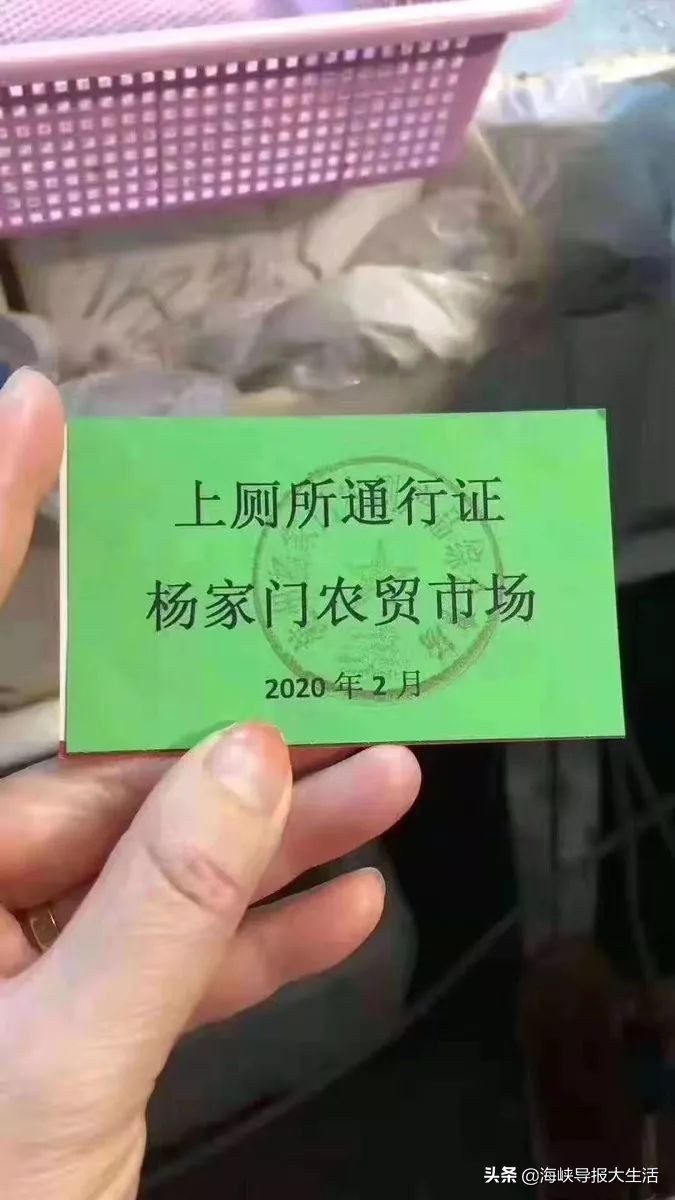 上厕所通行证
杨家门农贸市场
2020 年 2 月
头条 @海峡导报大生活